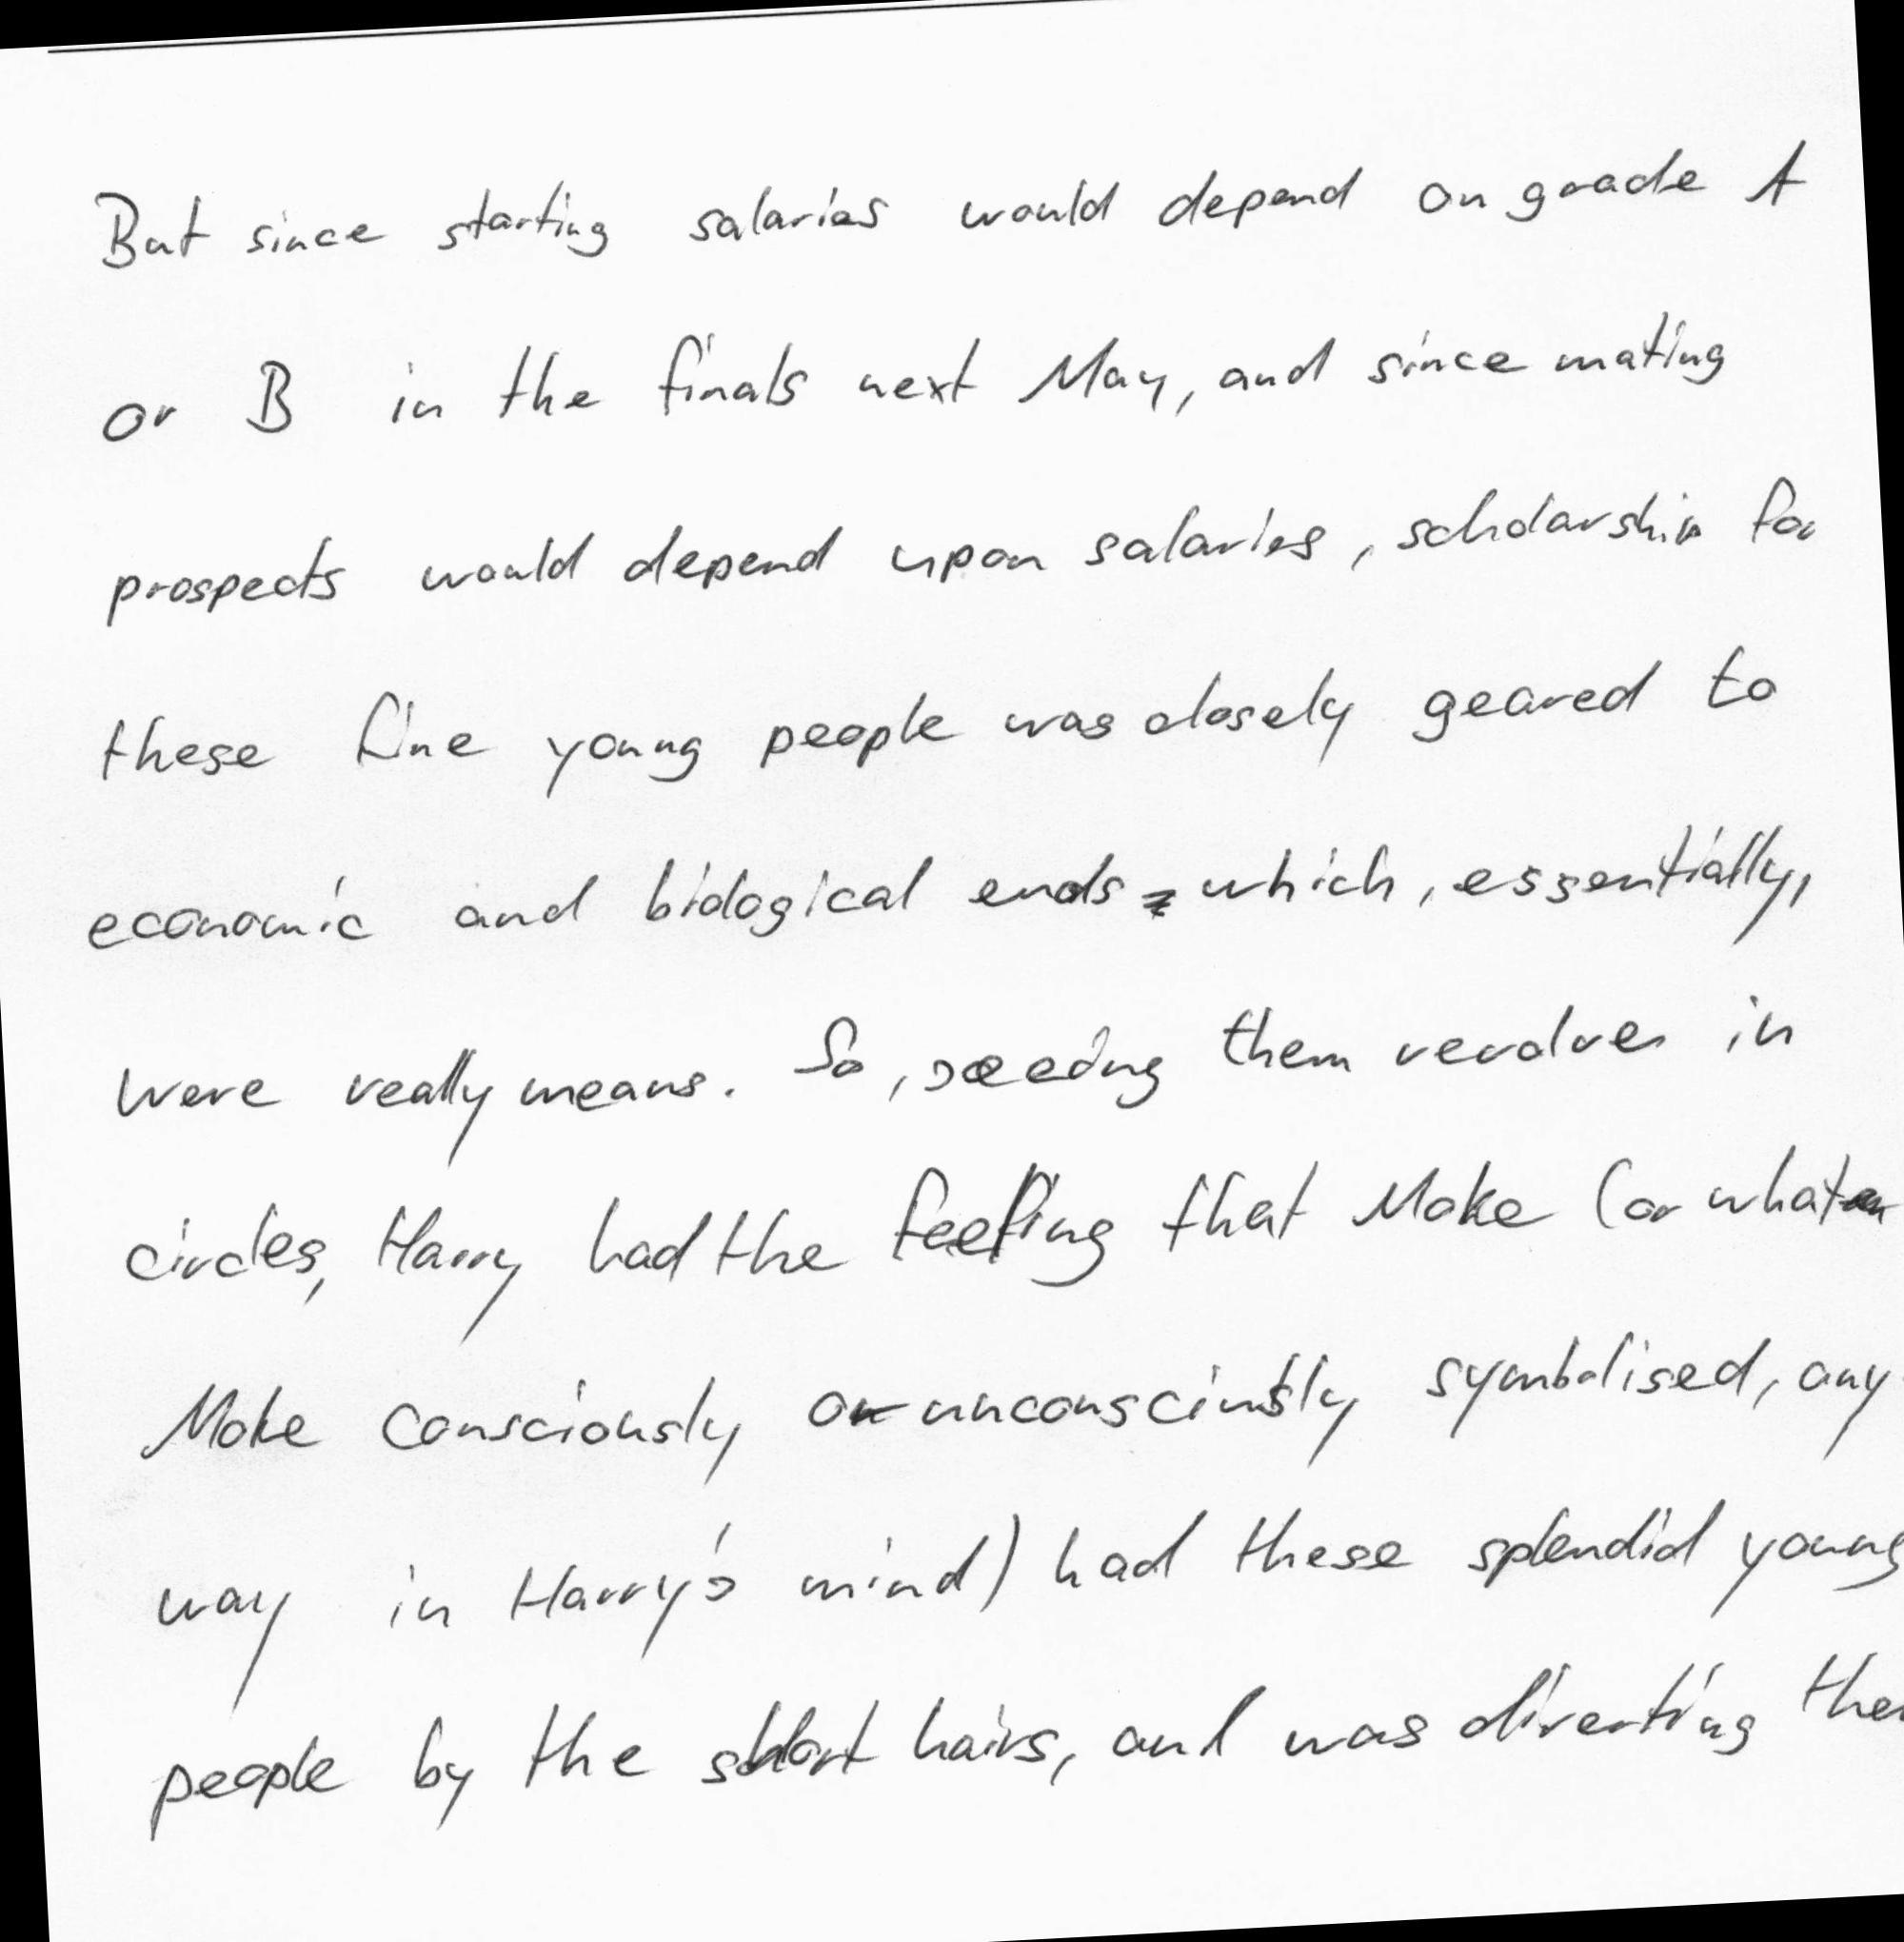 But since starting salaries would depend on grade A
or B in the finals next May, and since mating
prospects would depend upon salaries, scholarship for
these fine young people was closely geared to
economic and biological ends - which, essentially,
were really means. So, seeing them revolve in
circles, Harry had the feeling that Moke (or what
Moke consciously or unconsciously symbolised, any-
way in Harry's mind) had these splendid young
people by the short hairs, and was diverting